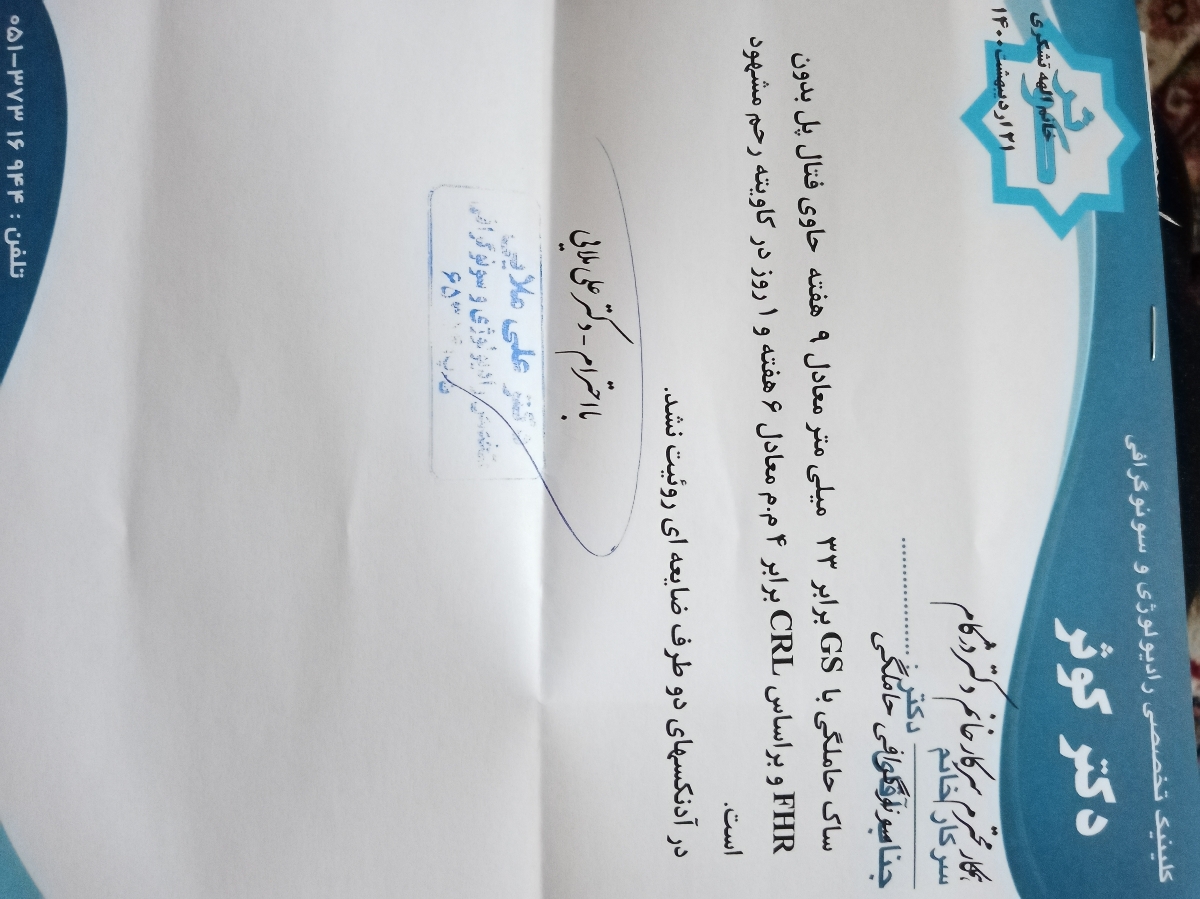 کلینیک تخصصی رادیولوژی و سونوگرافی
دکتر کوثر
کوثر
خانم الهه تشکری
۲۱ اردیبهشت ۱۴۰۰
همکار محترم سرکار خانم دکتر ورشکام
سرکار خانم
جناب آقای دکتر
سونوگرافی حاملگی
ساک حاملگی با GS برابر ۳۳ میلی متر معادل ۹ هفته حاوی فتال پل بدون
FHR و براساس CRL برابر ۴ م.م معادل ۶ هفته و ۱ روز در کاویته رحم مشهود
است.
در آدنکسهای دو طرف ضایعه ای روئیت نشد.
با احترام - دکتر علی ملائی
دکتر علی ملایی
رادیولوژی و سونوگرافی
تلفن : ۹۴۴ ۱۶ ۳۷۳-۰۵۱